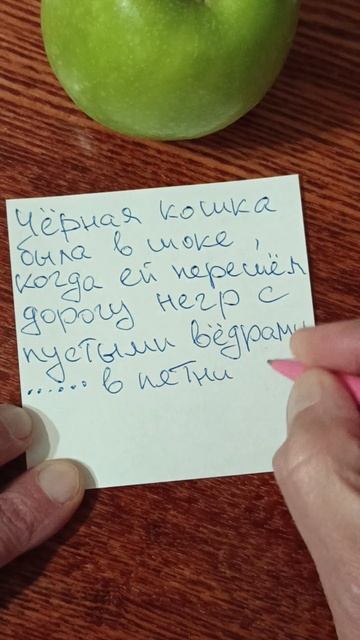 Чёрная кошка
была в шоке,
когда ей перешёл
дорогу негр с
пустыми вёдрами
...... в пятни